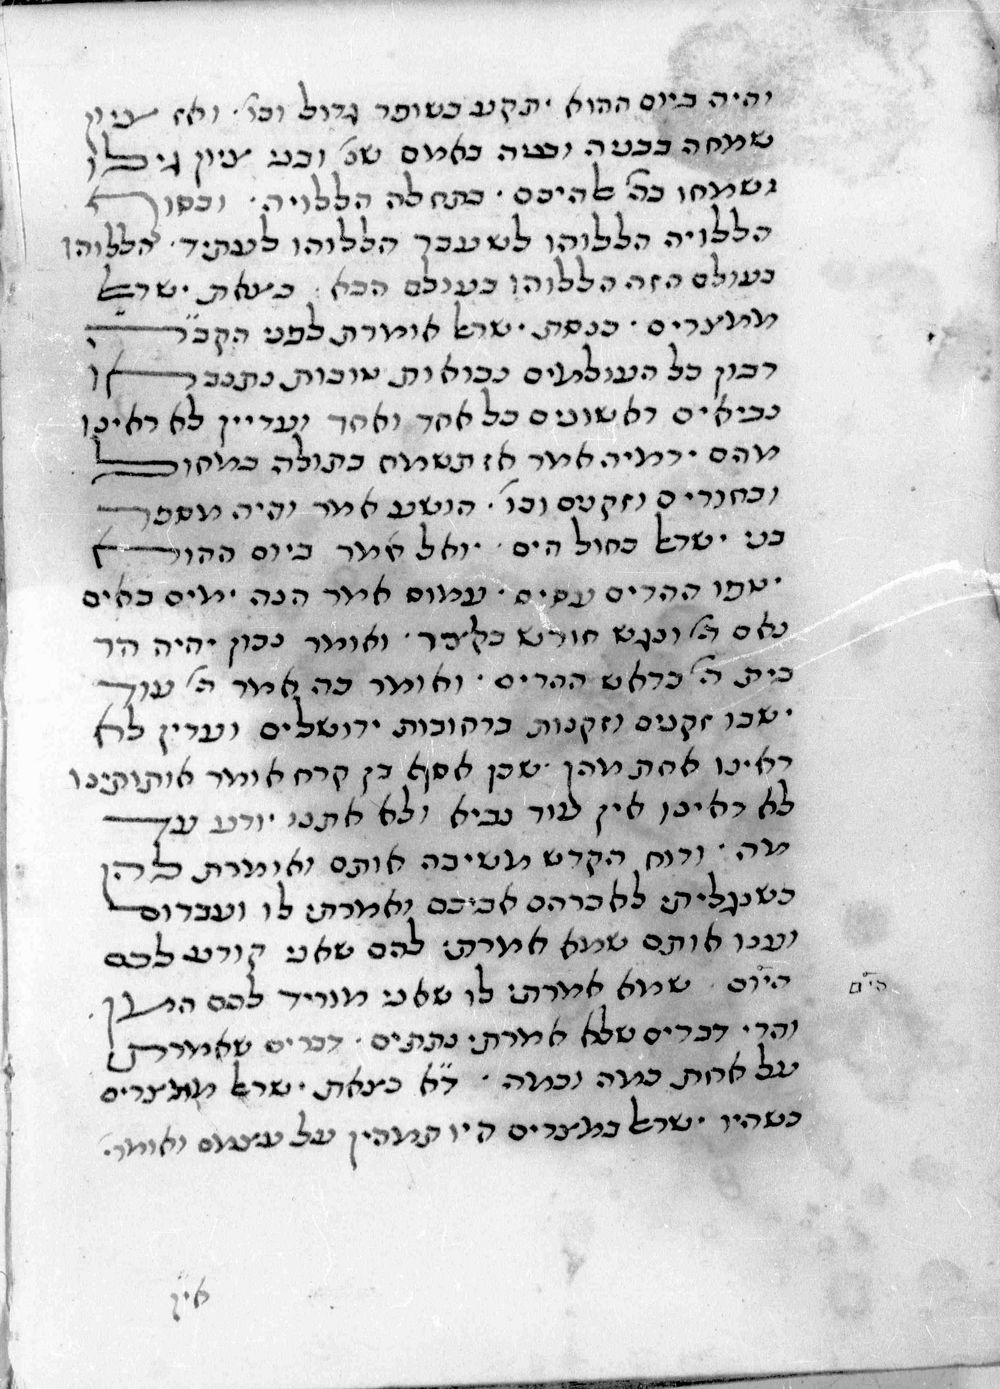 והיה ביום ההוא יתקע בשופר גדול וכו׳ ואז ציון
שמחה בבניה ובניה באמם שנ׳ ובני ציון גילו
ושמחו בה׳ להיכם בתחלה הללויה ובסוף
הללויה הללוהו לשעבר הללוהו לעתיד הללוהו
בעולם הזה הללוהו בעולם הבא בצאת ישראל
ממצרים כנסת ישראל אומרת לפני הקב״ה
רבון כל העולמים נבואות טובות נתנבאו
נביאים ראשונים כל אחד ואחד ועדיין לא ראינו
מהם ירמיה אמר אז תשמח בתולה במחול
ובחורים וזקנים וכו׳ הושע אמר והיה מספר
בני ישראל כחול הים יואל אמר ביום ההוא
יטפו ההרים עסיס עמוס אמר הנה ימים באים
נאם ה׳ ונגש חורש בקצר ואומר נכון יהיה הר
בית ה׳ בראש ההרים ואומר כה אמר ה׳ עוד
ישבו זקנים וזקנות ברחובות ירושלים ועדין לא
ראינו אחת מהן שכן אסף בן קרח אומר אותותינו
לא ראינו אין עוד נביא ולא אתנו יודע עד
מה ורוח הקדש משיבה אותם ואומרת להן
כשנגליתי לאברהם אביכם ואמרתי לו ועבדום
וענו אותם שמא אמרתי להם שאני קורע לכם
היום שמא אמרתי לו שאני מוריד להם המן
והרי דברים שלא אמרתי נתתים דברים שאמרתי
על אחת כמה וכמה ד״א בצאת ישראל ממצרים
כשהיו ישראל במצרים היו תמהין על עצמם ואומר׳
הים
אין